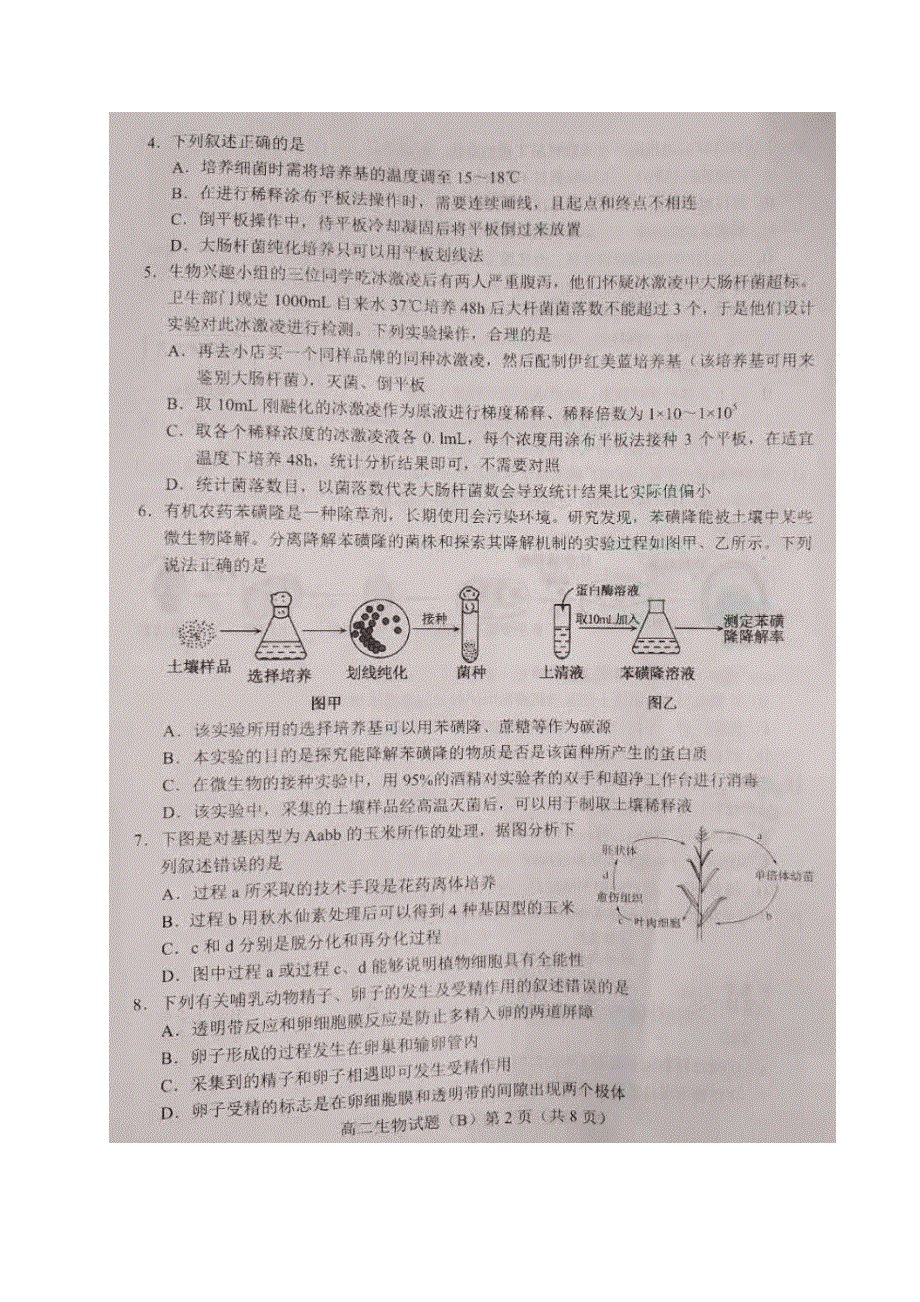 4．下列叙述正确的是
A．培养细菌时需将培养基的温度调至 15～18℃
B．在进行稀释涂布平板法操作时，需要连续画线，且起点和终点不相连
C．倒平板操作中，待平板冷却凝固后将平板倒过来放置
D．大肠杆菌纯化培养只可以用平板划线法
5．生物兴趣小组的三位同学吃冰激凌后有两人严重腹泻，他们怀疑冰激凌中大肠杆菌超标。
卫生部门规定 1000mL 自来水 37℃培养 48h 后大杆菌菌落数不能超过 3 个，于是他们设计
实验对此冰激凌进行检测。下列实验操作，合理的是
A．再去小店买一个同样品牌的同种冰激凌，然后配制伊红美蓝培养基（该培养基可用来
鉴别大肠杆菌），灭菌、倒平板
B．取 10mL 刚融化的冰激凌作为原液进行梯度稀释、稀释倍数为 1×10～1×10⁵
C．取各个稀释浓度的冰激凌液各 0. lmL，每个浓度用涂布平板法接种 3 个平板，在适宜
温度下培养 48h，统计分析结果即可，不需要对照
D．统计菌落数目，以菌落数代表大肠杆菌数会导致统计结果比实际值偏小
6．有机农药苯磺隆是一种除草剂，长期使用会污染环境。研究发现，苯磺隆能被土壤中某些
微生物降解。分离降解苯磺隆的菌株和探索其降解机制的实验过程如图甲、乙所示。下列
说法正确的是
土壤样品 选择培养 划线纯化 接种 菌种
图甲
蛋白酶溶液
上清液 取10mL加入 苯磺隆溶液 测定苯磺
隆降解率
图乙
A．该实验所用的选择培养基可以用苯磺隆、蔗糖等作为碳源
B．本实验的目的是探究能降解苯磺隆的物质是否是该菌种所产生的蛋白质
C．在微生物的接种实验中，用 95%的酒精对实验者的双手和超净工作台进行消毒
D．该实验中，采集的土壤样品经高温灭菌后，可以用于制取土壤稀释液
7．下图是对基因型为 Aabb 的玉米所作的处理，据图分析下
列叙述错误的是
A．过程 a 所采取的技术手段是花药离体培养
B．过程 b 用秋水仙素处理后可以得到 4 种基因型的玉米
C．c 和 d 分别是脱分化和再分化过程
D．图中过程 a 或过程 c、d 能够说明植物细胞具有全能性
胚状体
d
愈伤组织
c 叶肉细胞
a
单倍体幼苗
b
8．下列有关哺乳动物精子、卵子的发生及受精作用的叙述错误的是
A．透明带反应和卵细胞膜反应是防止多精入卵的两道屏障
B．卵子形成的过程发生在卵巢和输卵管内
C．采集到的精子和卵子相遇即可发生受精作用
D．卵子受精的标志是在卵细胞膜和透明带的间隙出现两个极体
高二生物试题（B）第 2 页（共 8 页）